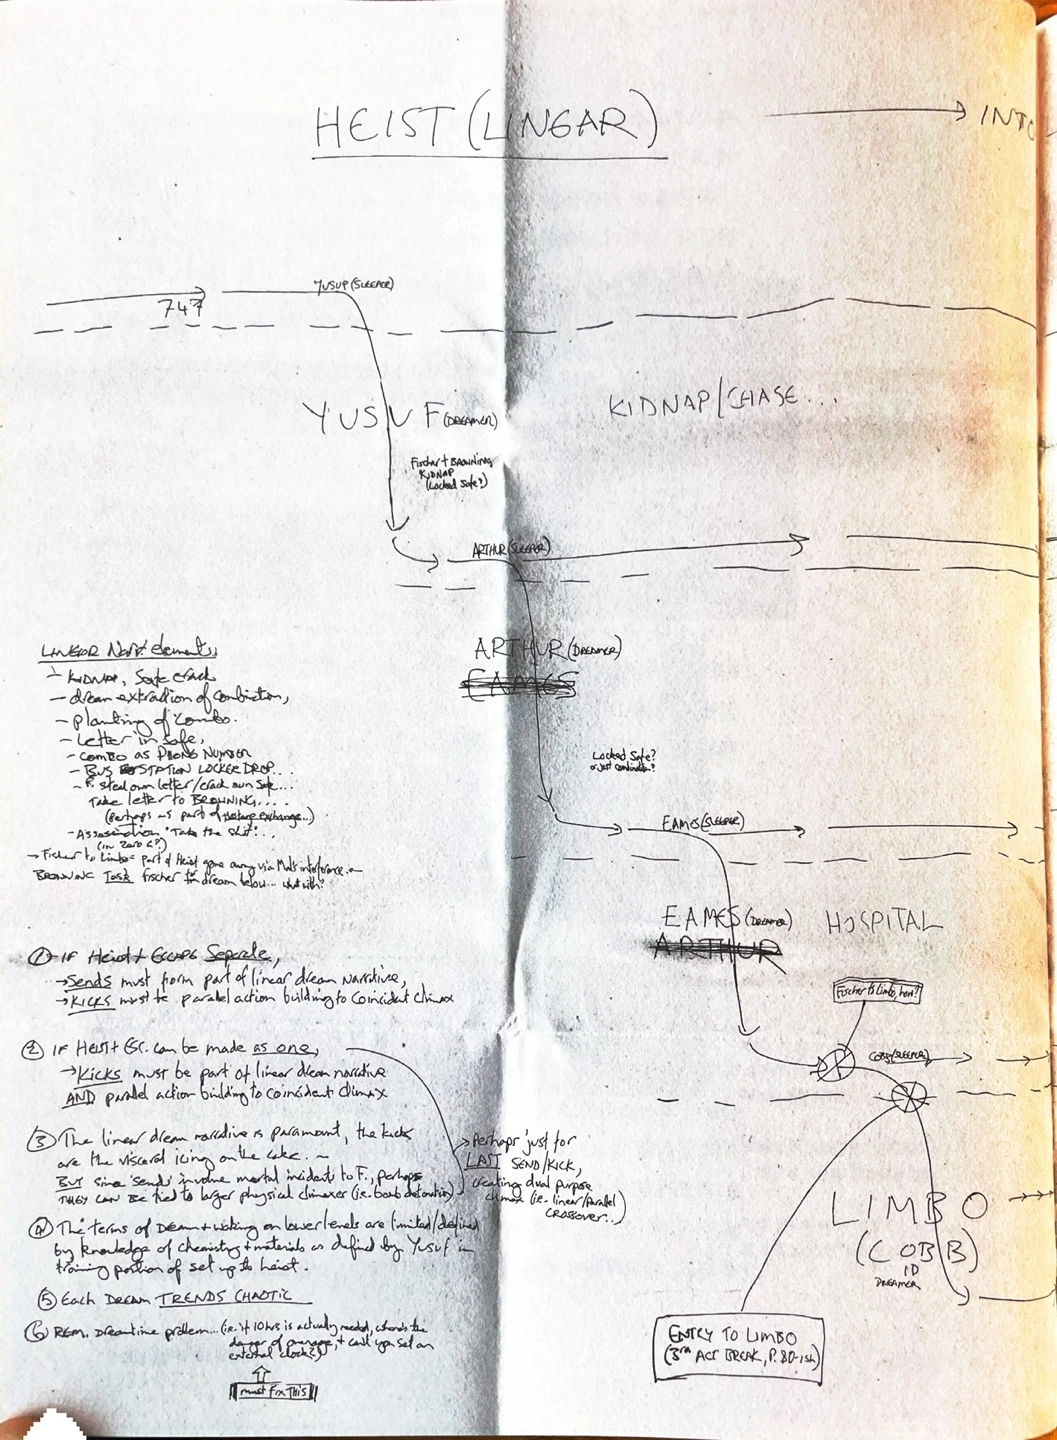 HEIST (LINEAR)
INTO
747
YUSUF (SLEEPER)
YUSUF (DREAMER)
KIDNAP/CHASE...
Fischer + BROWNING
KIDNAP
(Locked Safe?)
ARTHUR (SLEEPER)
ARTHUR (DREAMER)
EAMES
Locked Safe?
or just combination?
EAMES (SLEEPER)
EAMES (DREAMER) HOSPITAL
ARTHUR
Fischer to Limbo, here?
COBB (SLEEPER)
LIMBO
(COBB)
DREAMER
ENTRY TO LIMBO
(3RD ACT BREAK, P. 80-ish)
LINEAR Narr. elements
- KIDNAP, Safe crack
- dream extraction of combination,
- planting of combo.
- Letter in safe,
- COMBO AS PHONE NUMBER
- BUS STATION LOCKER DROP...
- F. steal own letter/crack own safe...
Take letter to BROWNING....
(perhaps as part of hostage exchange...)
- Assassination 'Take the shit'...
(in zero G?)
→ Fischer to Limbo = part of Heist gone away via Mal's interference.
BROWNING Fischer dream below... what with?
① IF Heist + ESCAPE Separate,
→ Sends must form part of linear dream narrative,
→ KICKS must be parallel action building to Coincident Climax
② IF HEIST + ESC. can be made as one,
→ KICKS must be part of linear dream narrative
AND parallel action building to Coincident Climax
③ The linear dream narrative is paramount, the kicks
are the visceral icing on the cake. ~
BUT since 'sends' involve mortal incidents to F., perhaps
THEY CAN BE tied to larger physical climaxes (i.e. bomb detonation)
→ Perhaps just for
LAST SEND/KICK,
creating dual purpose
climax (i.e. linear/parallel
CROSSOVER...)
④ The terms of Dream + Waking on lower levels are limited/defined
by knowledge of chemistry + materials as defined by YUSUF in
training portion of set up to heist.
⑤ Each DREAM TRENDS CHAOTIC
⑥ REM. Dreamtime problem... (i.e. if 10 hrs is actually needed, the
danger of , + can't you set an
external clock?)
must FIX THIS